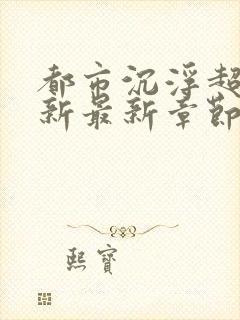 都市沉浮超
新最新章節
熙寶